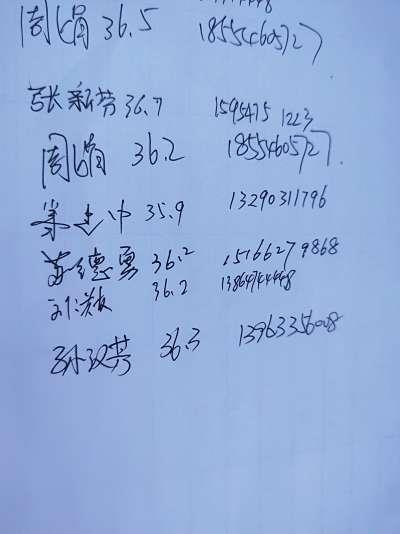 周娟 36.5 18554605727
张新芳 36.7 15954751223
周娟 36.2 18554605727
中 35.9 13290311796
苏德勇 36.2 15166279868
36.2 13864744468
孙汉芬 36.3 13963356008